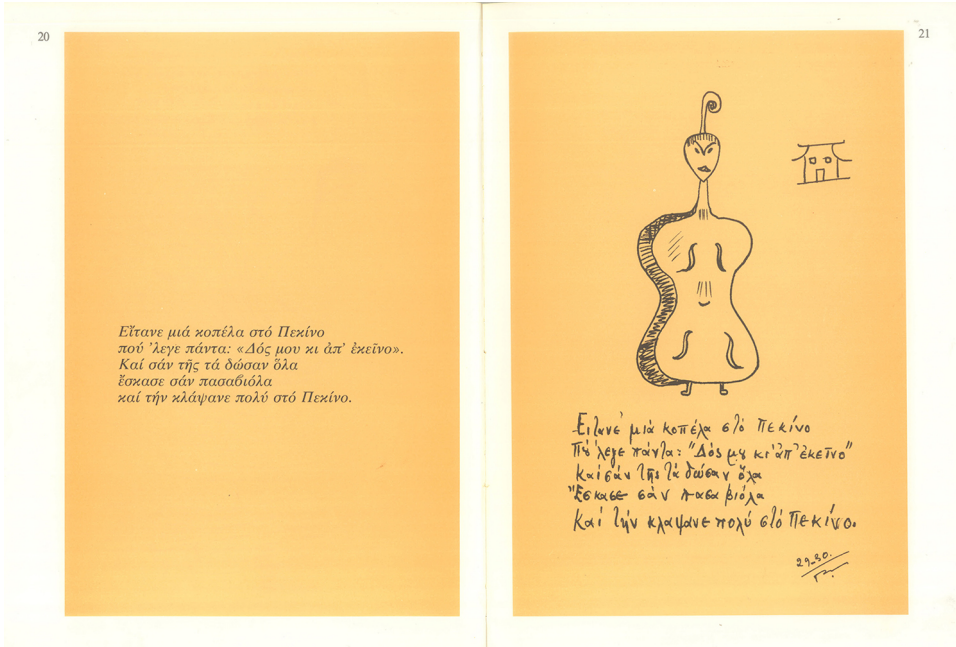 20
Εἴτανε μιά κοπέλα στό Πεκίνο
πού ’λεγε πάντα: «Δός μου κι ἀπ’ ἐκεῖνο».
Καί σάν τῆς τά δώσαν ὅλα
ἔσκασε σάν πασαβιόλα
καί τήν κλάψανε πολύ στό Πεκίνο.
21
Εἴτανε μιά κοπέλα στό Πεκίνο
Πού λεγε πάντα: "Δός μου κι ἀπ' ἐκεῖνο"
Καί σάν τῆς τά δώσαν ὅλα
Ἔσκασε σάν πασαβιόλα
Καί τήν κλαψανε πολύ στό Πεκίνο.
29-30.